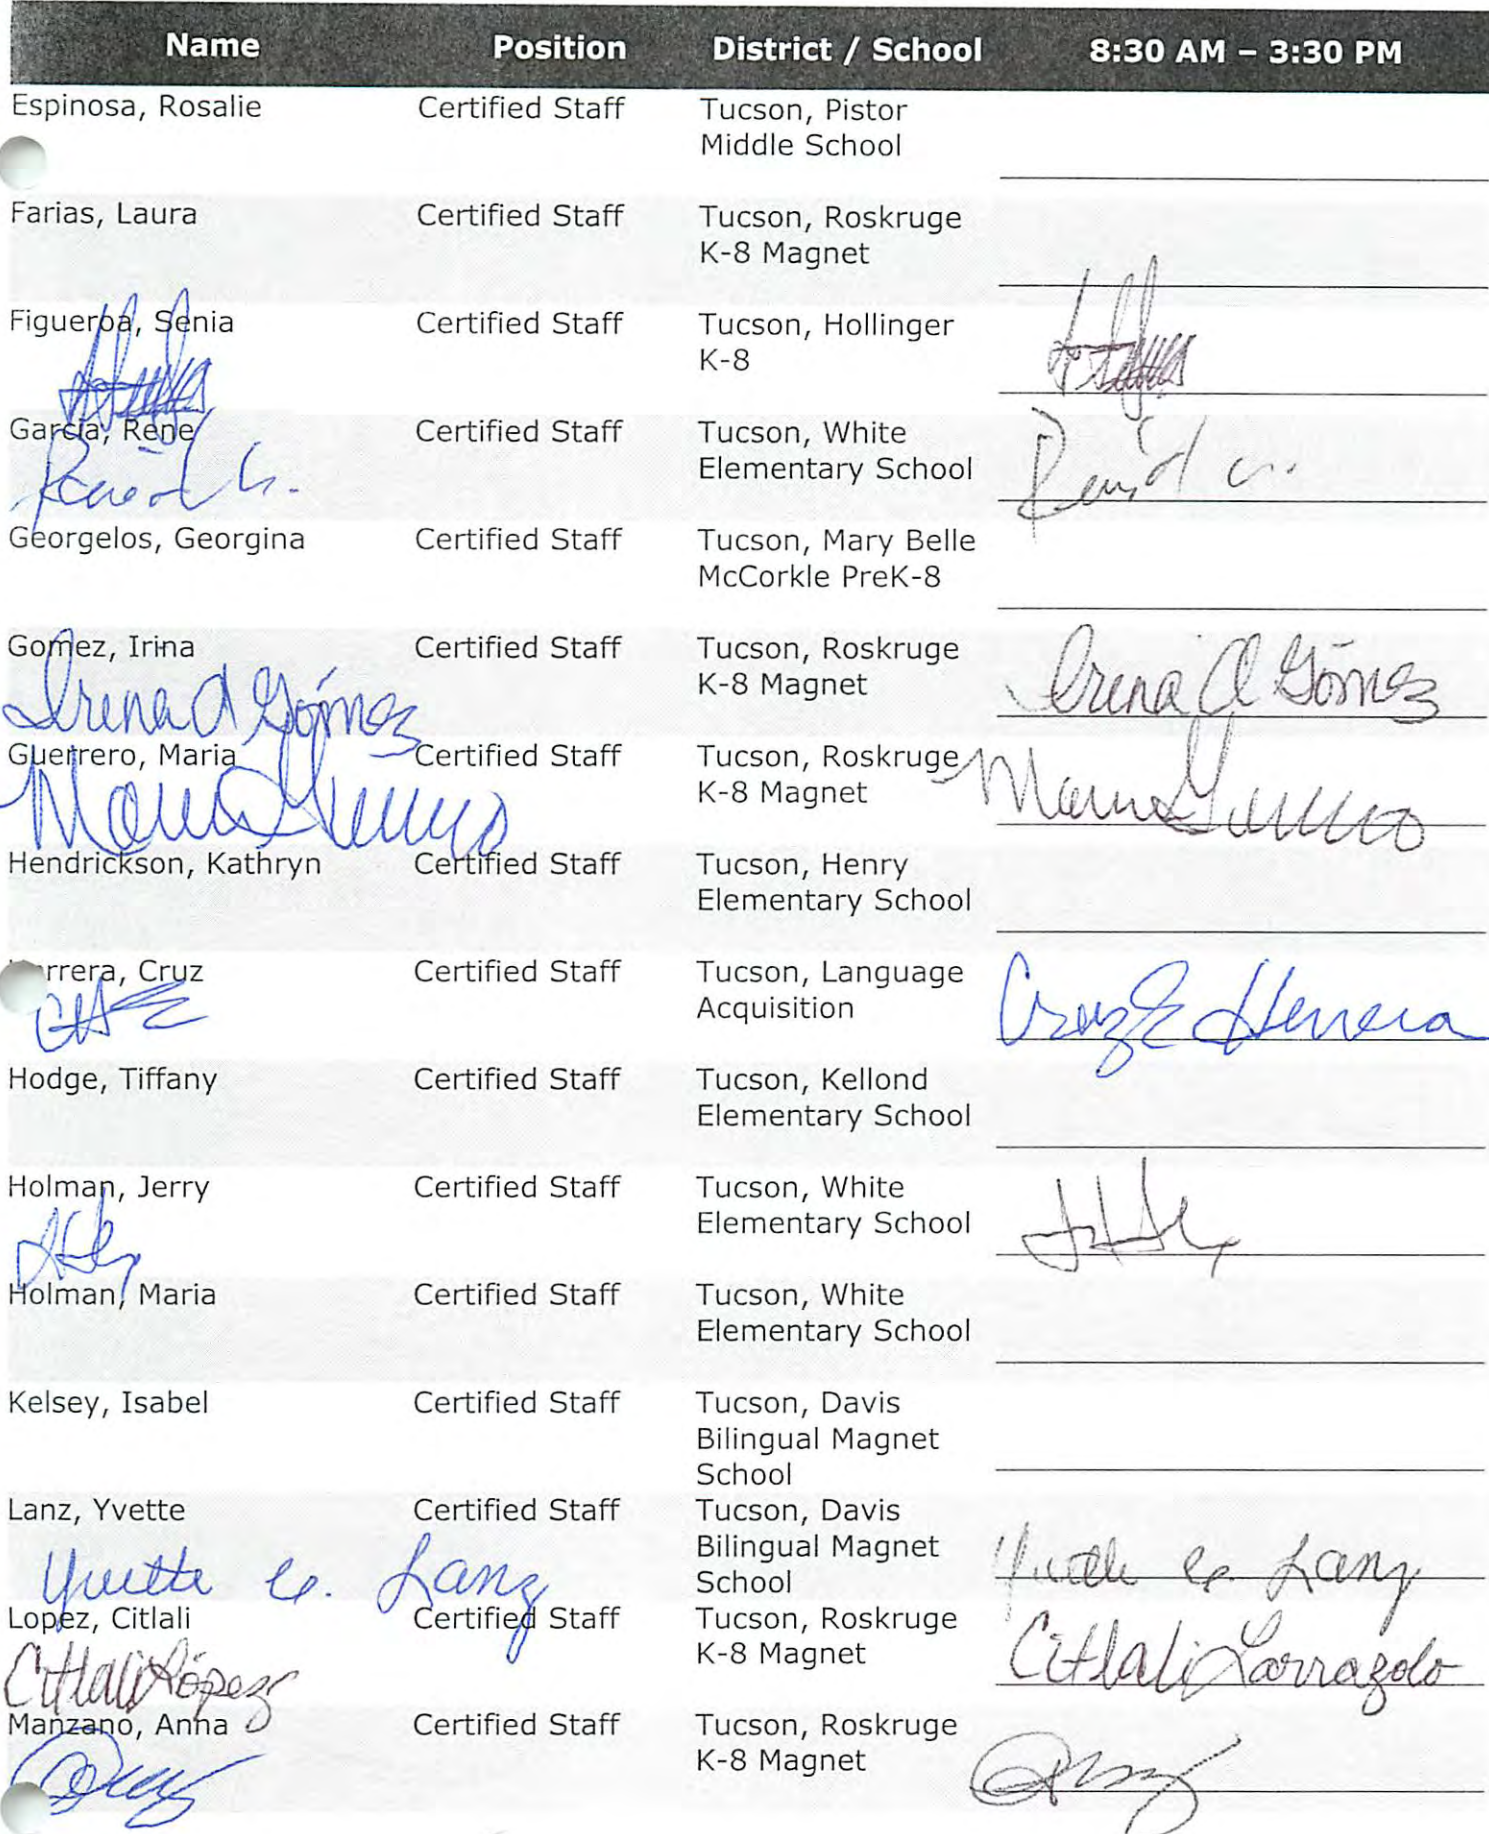 Name Position District / School 8:30 AM – 3:30 PM
Espinosa, Rosalie Certified Staff Tucson, Pistor
Middle School
Farias, Laura Certified Staff Tucson, Roskruge
K-8 Magnet
Figueroa, Senia Certified Staff Tucson, Hollinger
K-8
Garcia, Rene Certified Staff Tucson, White
Elementary School
Georgelos, Georgina Certified Staff Tucson, Mary Belle
McCorkle PreK-8
Gomez, Irina Certified Staff Tucson, Roskruge
K-8 Magnet
Irina A Gómez Irina A Gómez
Guerrero, Maria Certified Staff Tucson, Roskruge
K-8 Magnet
Maria Guerrero Maria Guerrero
Hendrickson, Kathryn Certified Staff Tucson, Henry
Elementary School
rrera, Cruz Certified Staff Tucson, Language
Acquisition
Cruz E Herrera
Hodge, Tiffany Certified Staff Tucson, Kellond
Elementary School
Holman, Jerry Certified Staff Tucson, White
Elementary School
Holman, Maria Certified Staff Tucson, White
Elementary School
Kelsey, Isabel Certified Staff Tucson, Davis
Bilingual Magnet
School
Lanz, Yvette Certified Staff Tucson, Davis
Bilingual Magnet
School
Yvette C. Lanz Yvette C. Lanz
Lopez, Citlali Certified Staff Tucson, Roskruge
K-8 Magnet
Citlali López Citlali Larrazolo
Manzano, Anna Certified Staff Tucson, Roskruge
K-8 Magnet